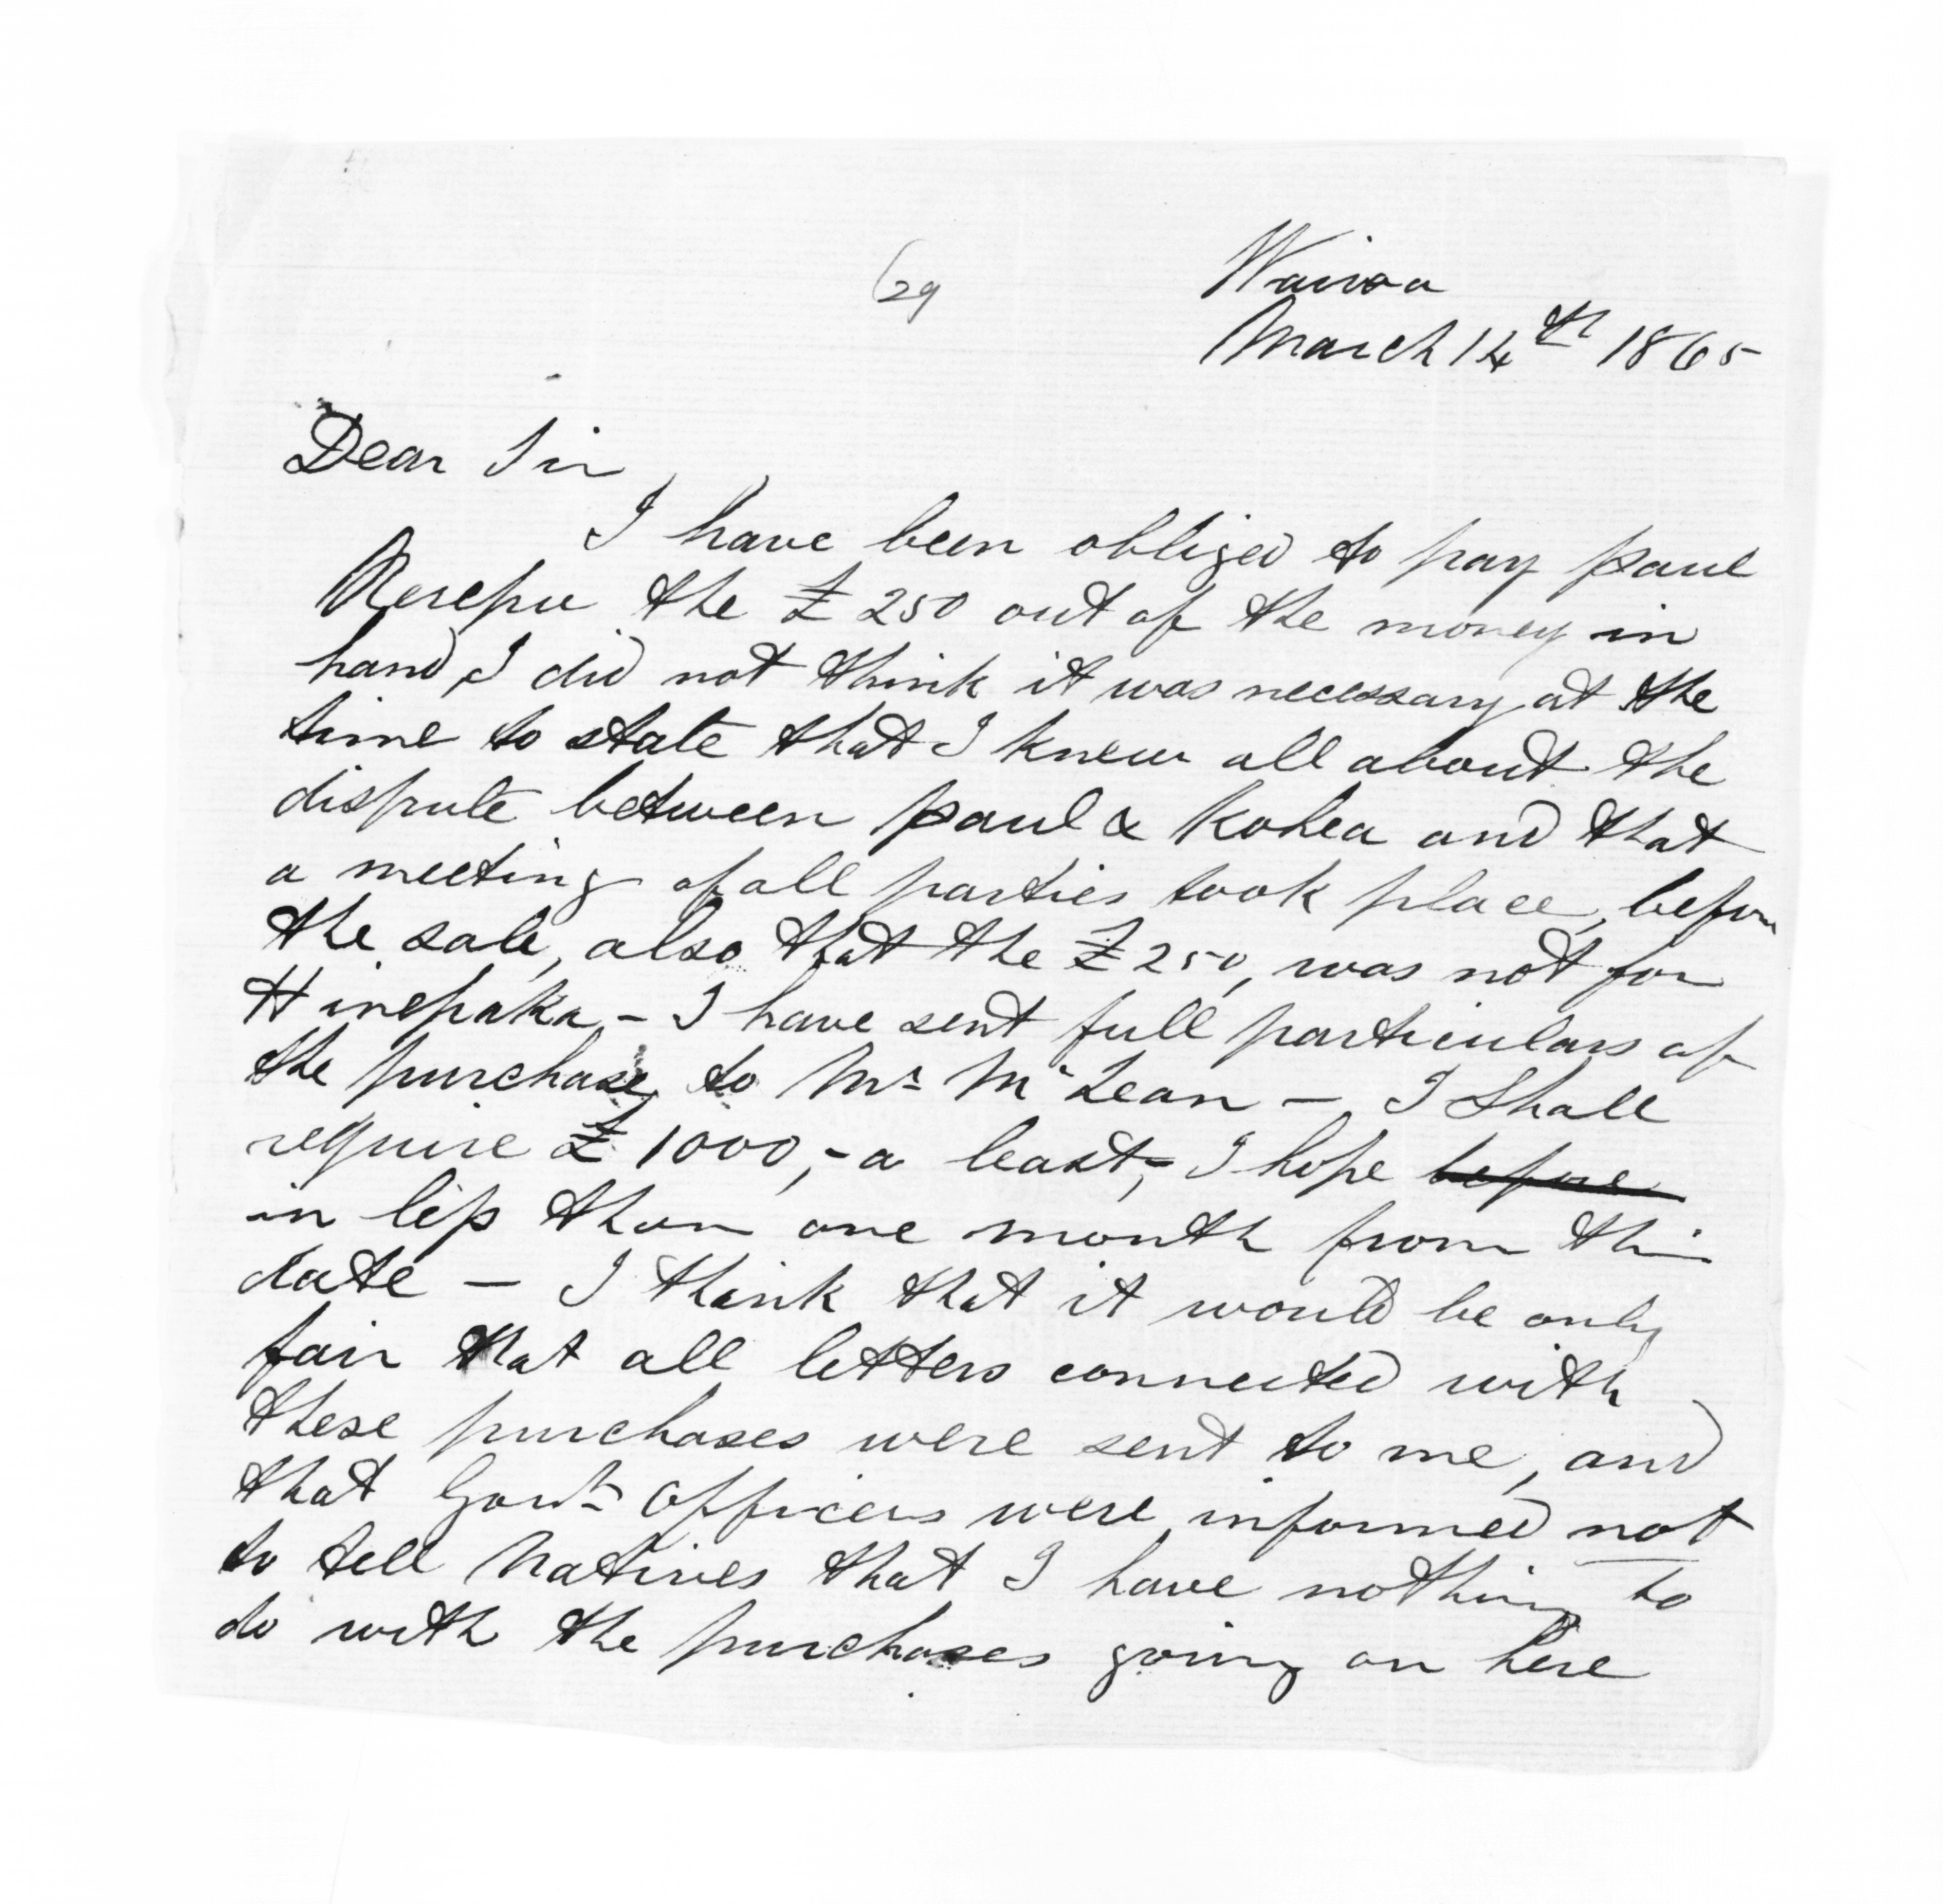 (29
Wairoa
March 14th 1865
Dear Sir,
I have been obliged to pay Paul
Rerepu the £250 out of the money in
hand, I did not think it was necessary at the
time to state that I knew all about the
dispute between Paul & Kohea and that
a meeting of all parties took place, before
the sale, also that the £250, was not for
Hinepaka, - I have sent full particulars of
the purchase, to Mr McLean - I shall
require £1000, - a least, - I hope before
in less than one month from this
date - I think that it would be only
fair that all letters connected with
these purchases were sent to me, and
that Govt officers were informed not
to tell Natives that I have nothing to
do with the purchases going on here